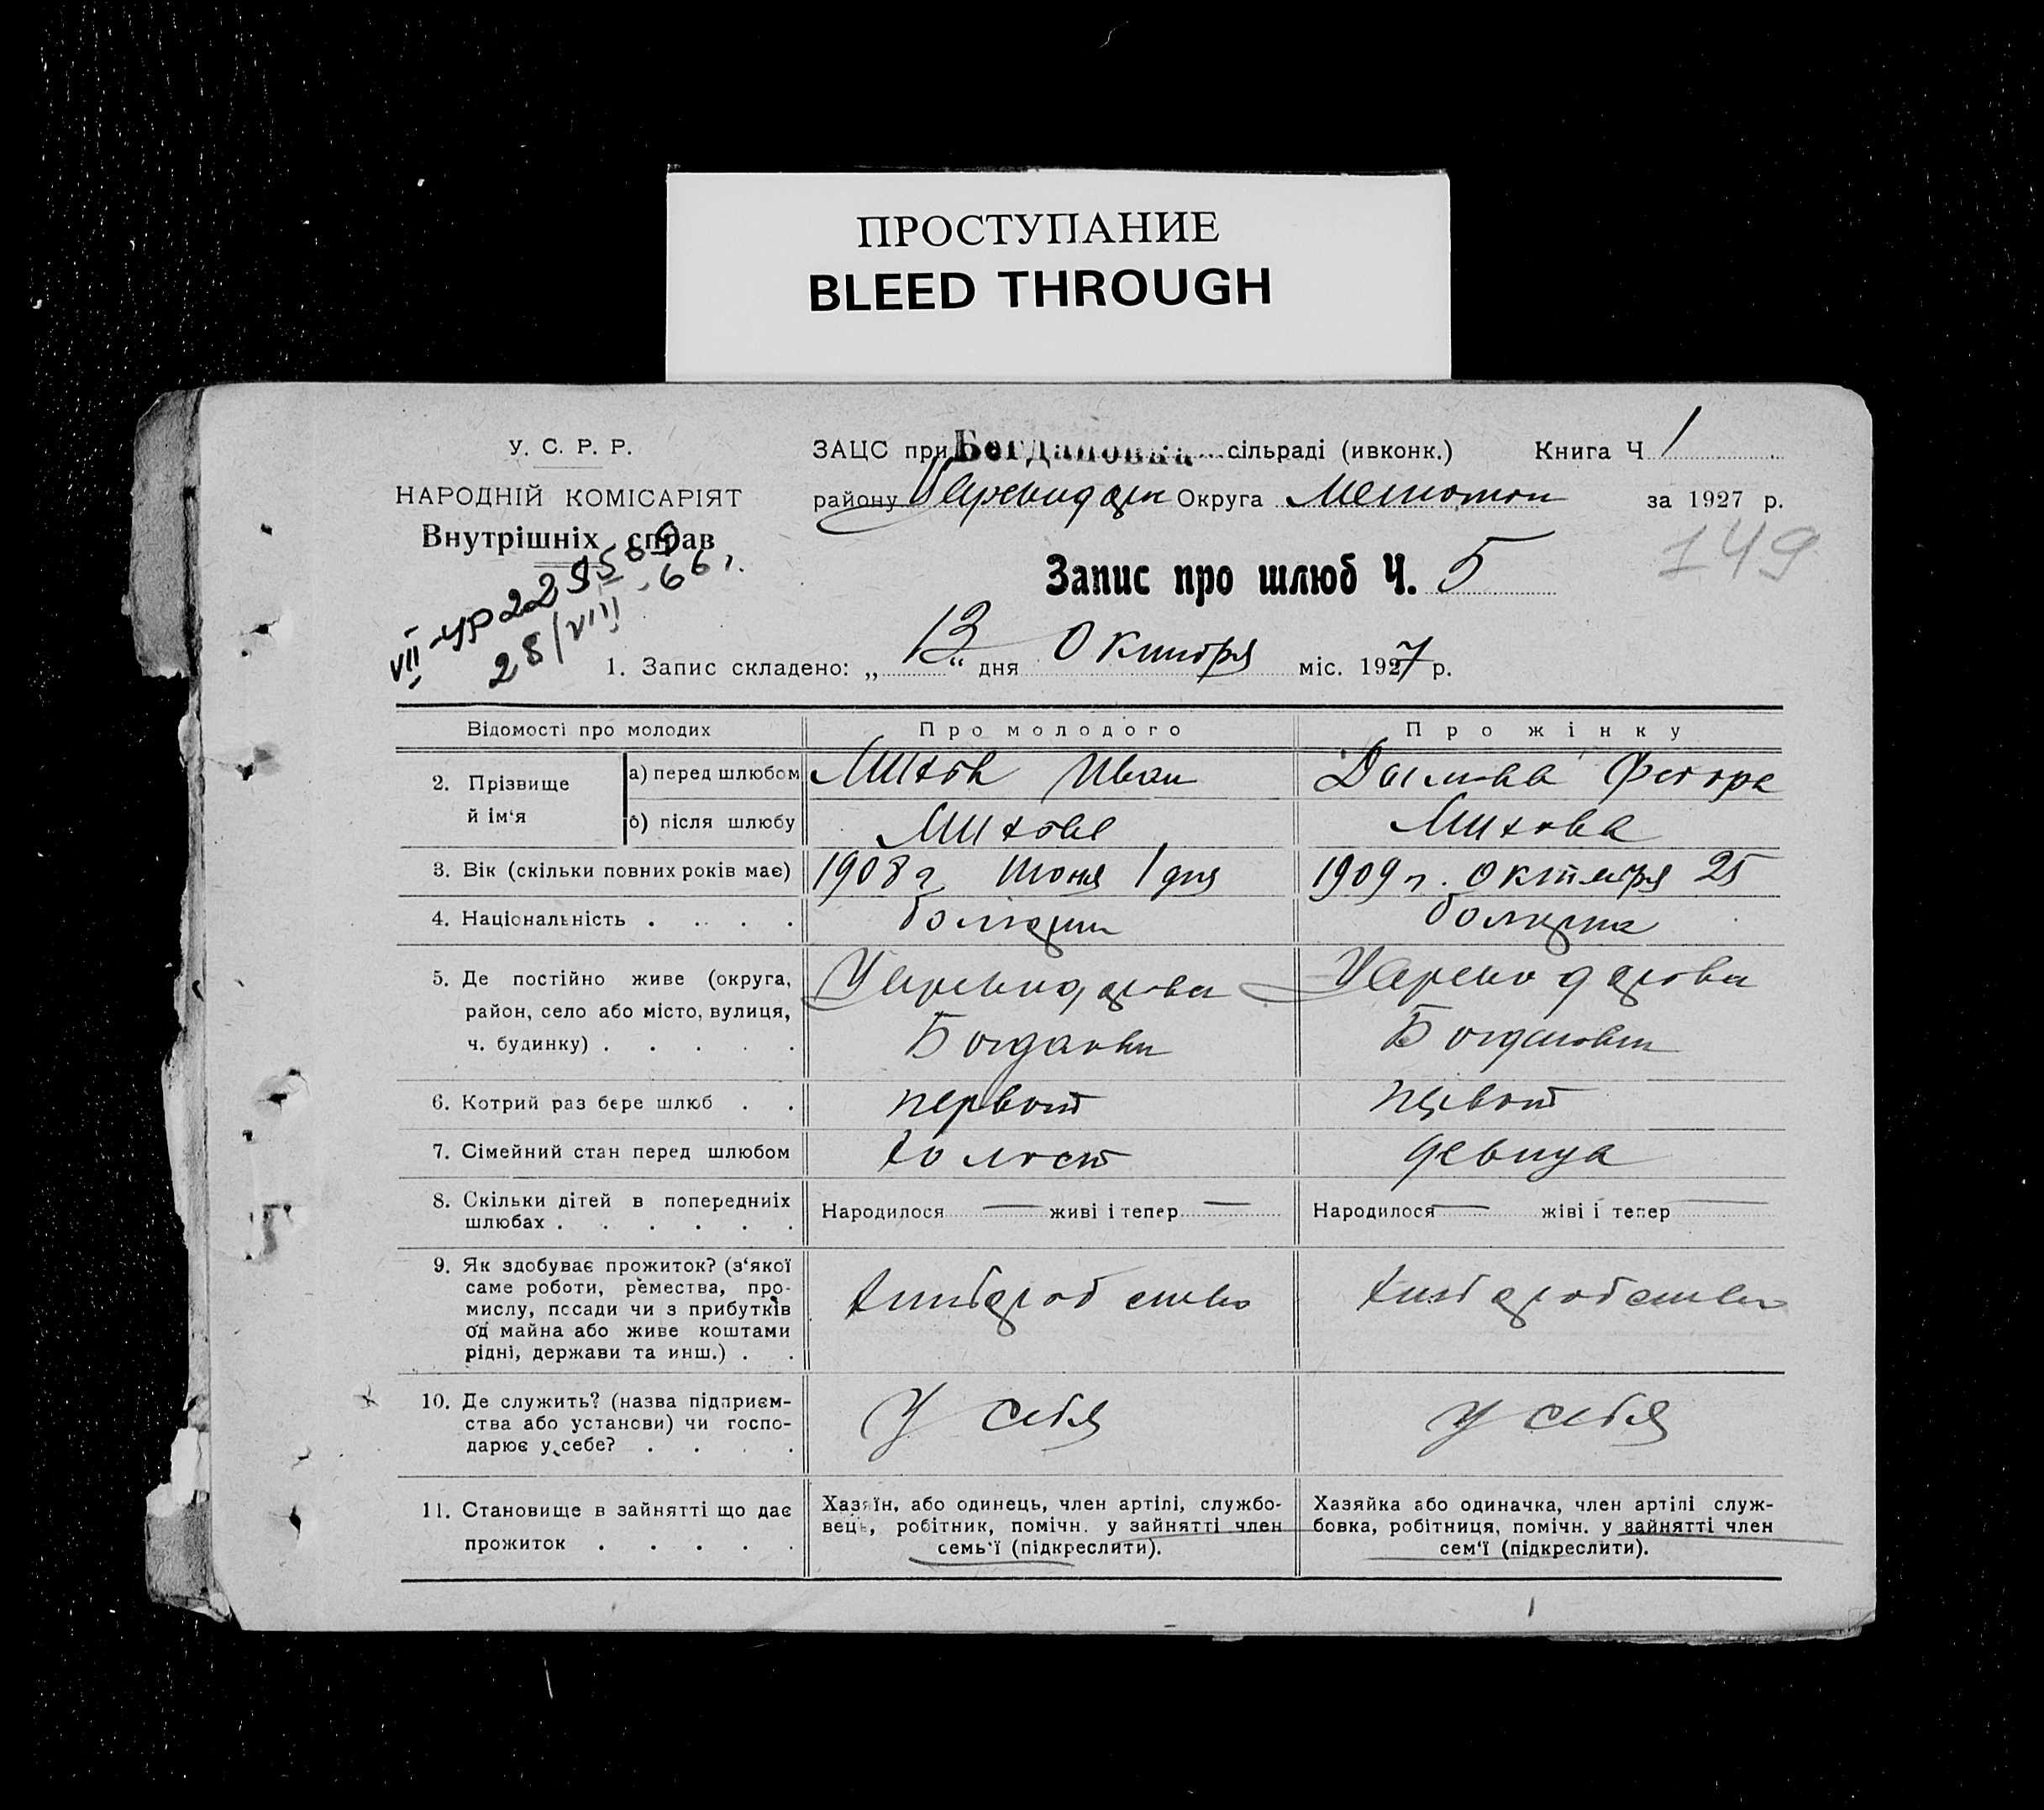 ПРОСТУПАНИЕ
BLEED THROUGH
У. С. Р. Р.
НАРОДНІЙ КОМІСАРІЯТ
Внутрішніх справ
ЗАЦС при Богдановка сільраді (ивконк.) Книга Ч 1
району Округа Мелитоп за 1927 р.
149
Запис про шлюб Ч. 5
28/VIII-66г.
1. Запис складено: „ 13 “ дня Октября міс. 1927 р.
Відомості про молодих Про молодого Про жінку
2. Прізвище й ім‘я
а) перед шлюбом Митов Иван
б) після шлюбу Митова
3. Вік (скільки повних років має) 1908 г. Июня 1 дня 1909 г. Октября 25
4. Національність . . . . болгарин болгарка
5. Де постійно живе (округа,
район, село або місто, вулиця,
ч. будинку) . . . . .
Богдановка Богдановка
6. Котрий раз бере шлюб . . первой первой
7. Сімейний стан перед шлюбом холост девица
8. Скільки дітей в попередниіх
шлюбах . . . . . .
Народилося — живі і тепер — Народилося — жіві і тепер —
9. Як здобуває прожиток? (з‘якої
саме роботи, ремества, про-
мислу, посади чи з прибутків
од майна або живе коштами
рідні, держави та инш.) . .
хлебаробство хлебаробство
10. Де служить? (назва підприєм-
ства або установи) чи госпо-
дарює у себе? . . . .
У себя у себя
11. Становище в зайнятті що дає
прожиток . . . . .
Хазяїн, або одинець, член артілі, службо-
вець, робітник, помічн. у зайнятті член
семь‘ї (підкреслити).
Хазяйка або одиначка, член артілі служ-
бовка, робітниця, помічн. у зайнятті член
сем‘ї (підкреслити).